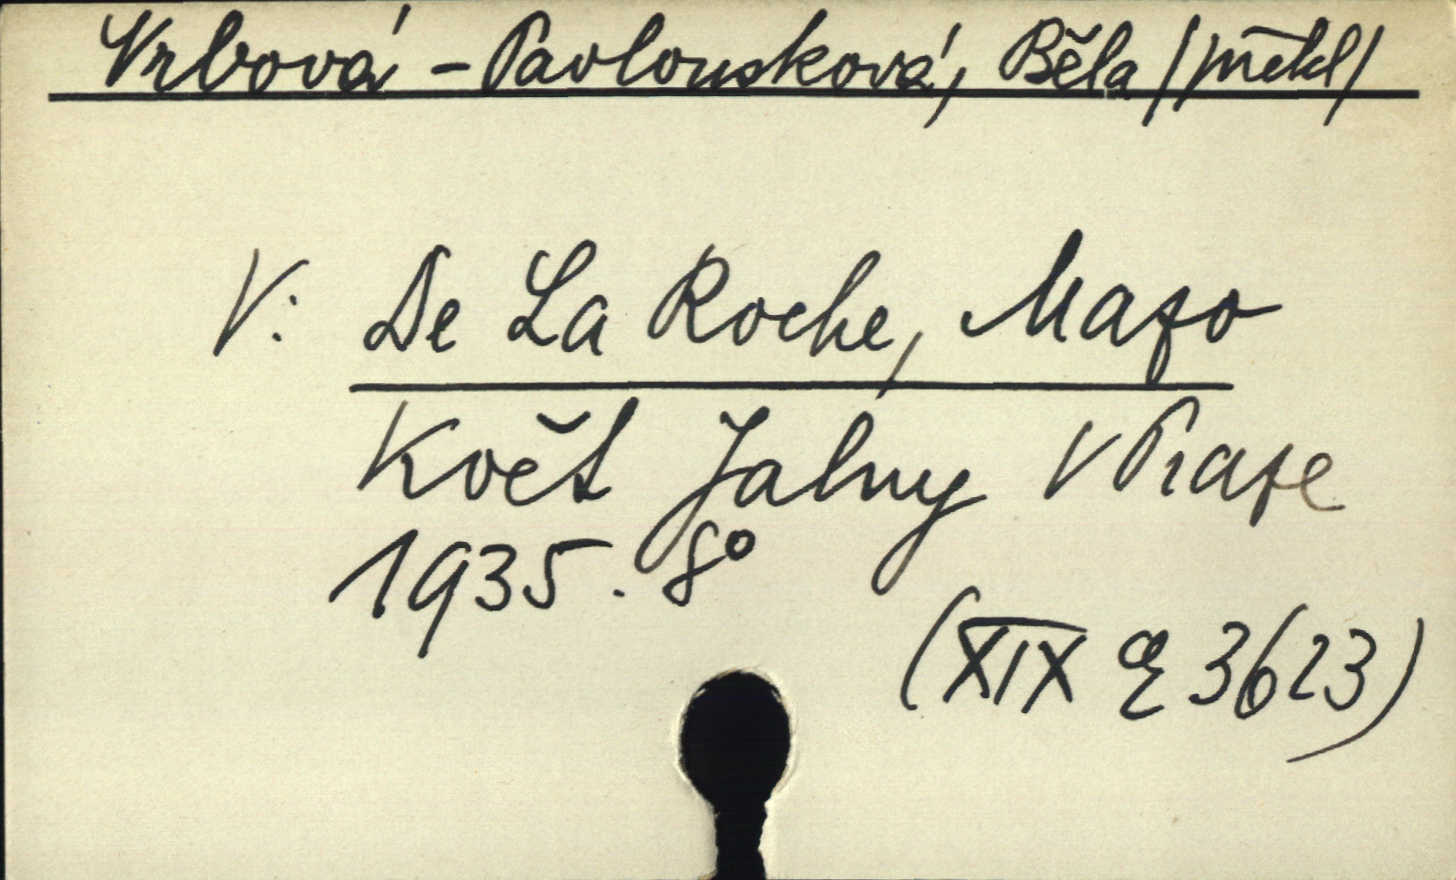 Vrbová - Pavlousková, Běla /překl/
V: De La Roche, Mazo
Květ Jalny V Praze
1935. 8°
(XIX E 3623)